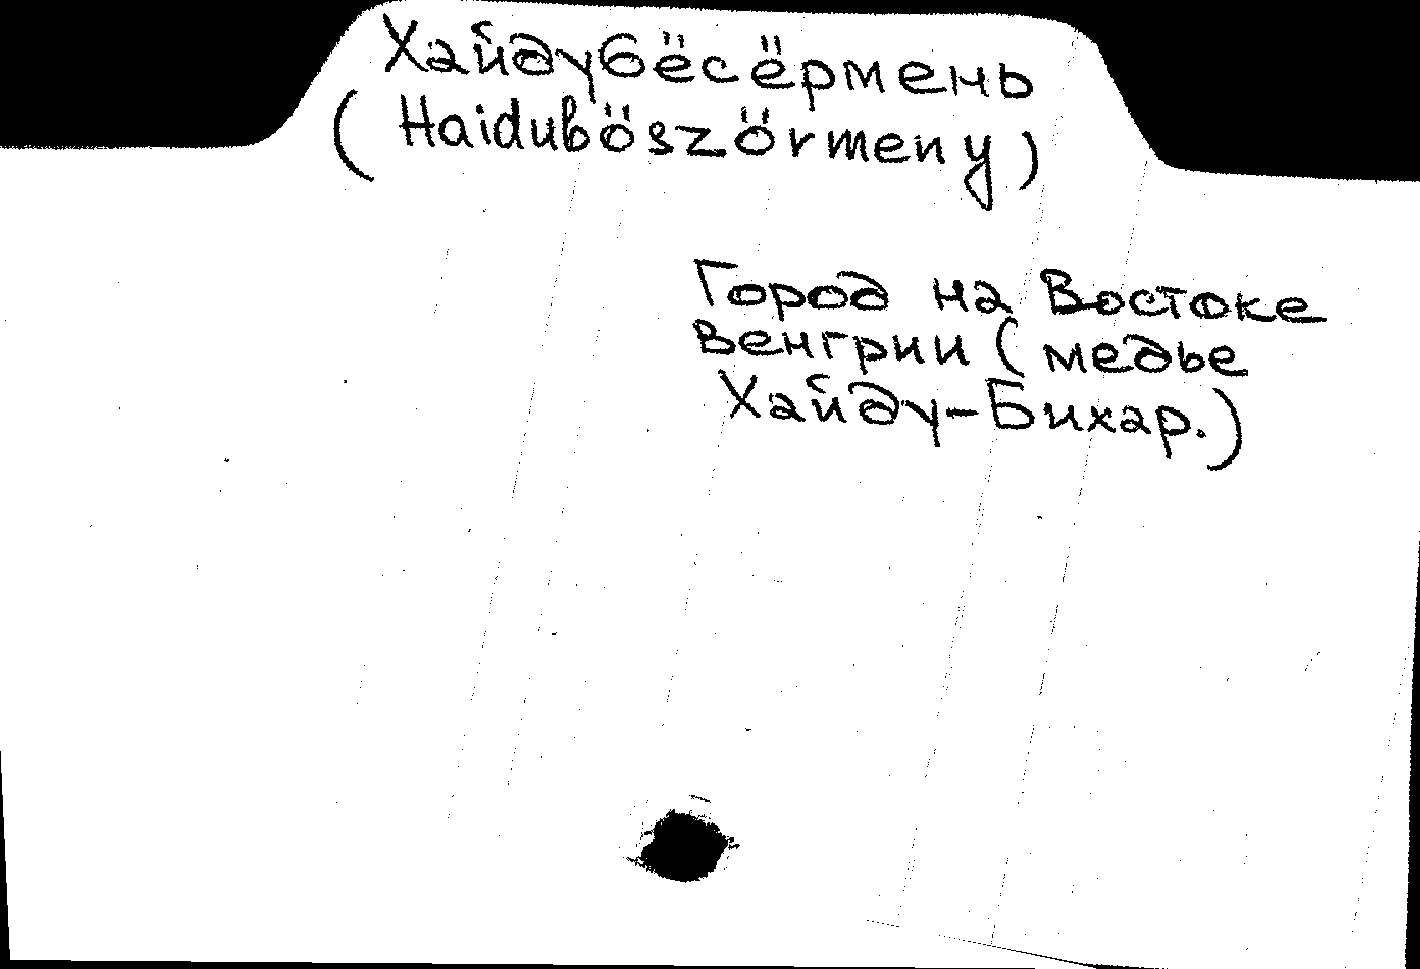 Хайдубёсёрмень
(Haiduböszörmeny)
Город на Востоке
Венгрии (медье
Хайду-Бихар.)